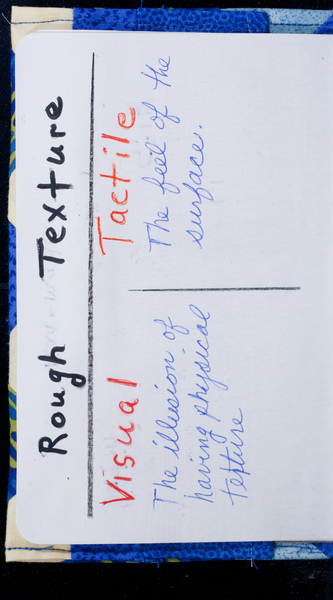 Rough Texture
Visual
The illusion of
having physical
texture
Tactile
The feel of the
surface.